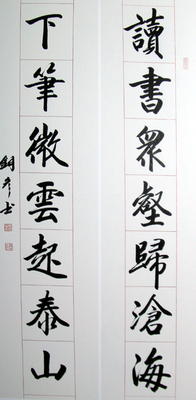 讀書眾壑歸滄海
下筆微雲起泰山